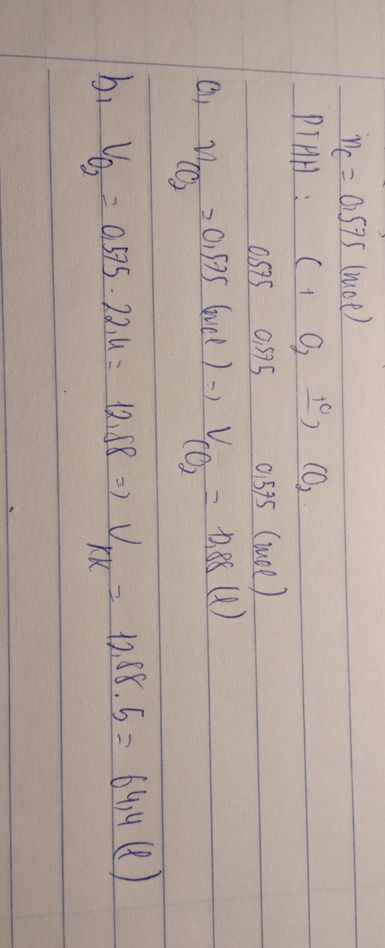 nC = 0,575 (mol)
PTHH : C + O2 t°→ CO2
0,575 0,575 0,575 (mol)
a, nCO2 = 0,575 (mol) => VCO2 = 12,88 (l)
b, VO2 = 0,575 . 22,4 = 12,88 => VKK = 12,88 . 5 = 64,4 (l)